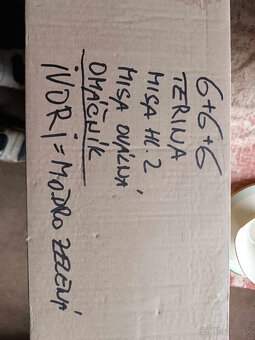 6+6+6
TERINA
MISA HL. 2
MISA OVÁLNA
OMÁČNÍK
IVORI = MODRO ZELENÁ